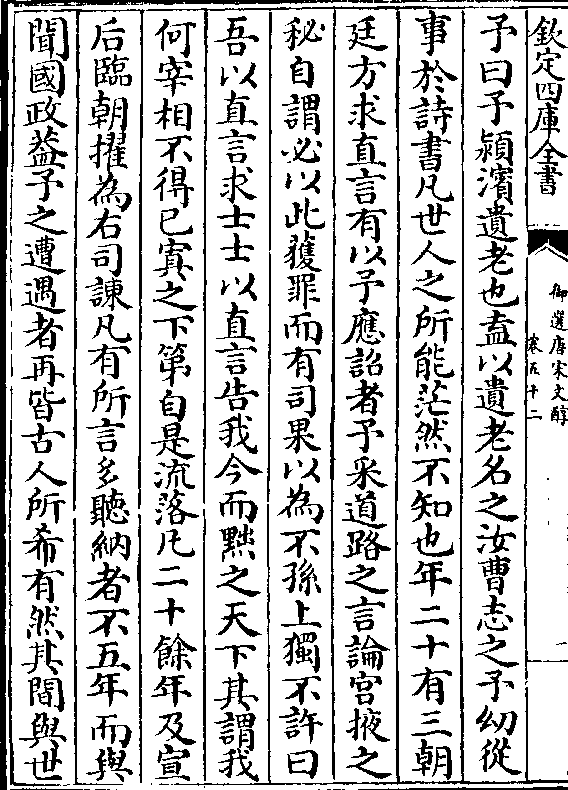 欽定四庫全書
御選唐宋文醇
卷五十二
予曰予潁濱遺老也盍以遺老名之汝曹志之予幼從
事於詩書凡世人之所能茫然不知也年二十有三朝
廷方求直言有以予應詔者予采道路之言論宮掖之
秘自謂必以此獲罪而有司果以為不孫上獨不許曰
吾以直言求士士以直言告我今而黜之天下其謂我
何宰相不得已寘之下第自是流落凡二十餘年及宣
后臨朝擢為右司諫凡有所言多聽納者不五年而與
聞國政葢予之遭遇者再皆古人所希有然其間與世